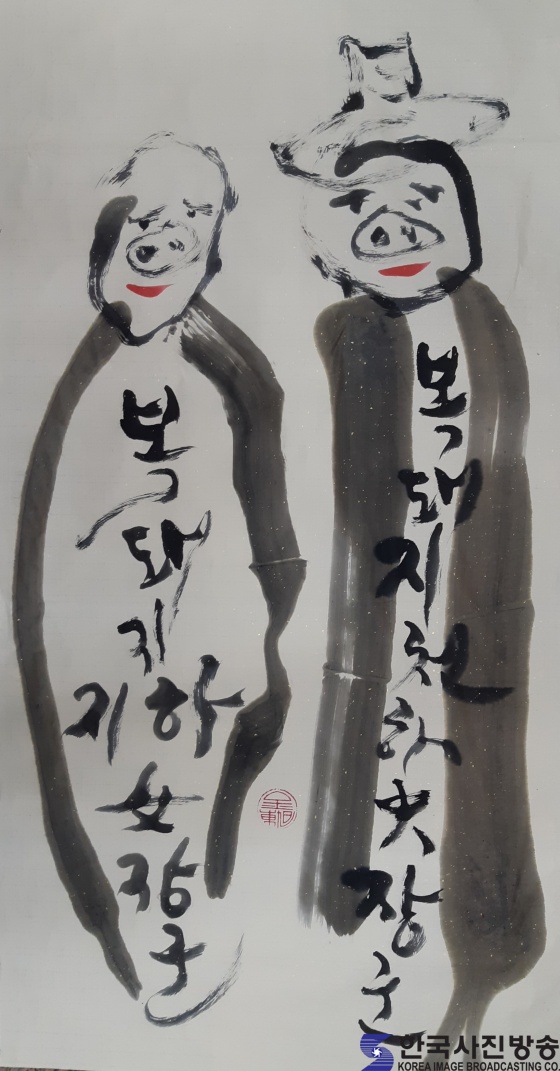 복돼지천하大장군
복돼지지하女장군
한국사진방송
KOREA IMAGE BROADCASTING CO